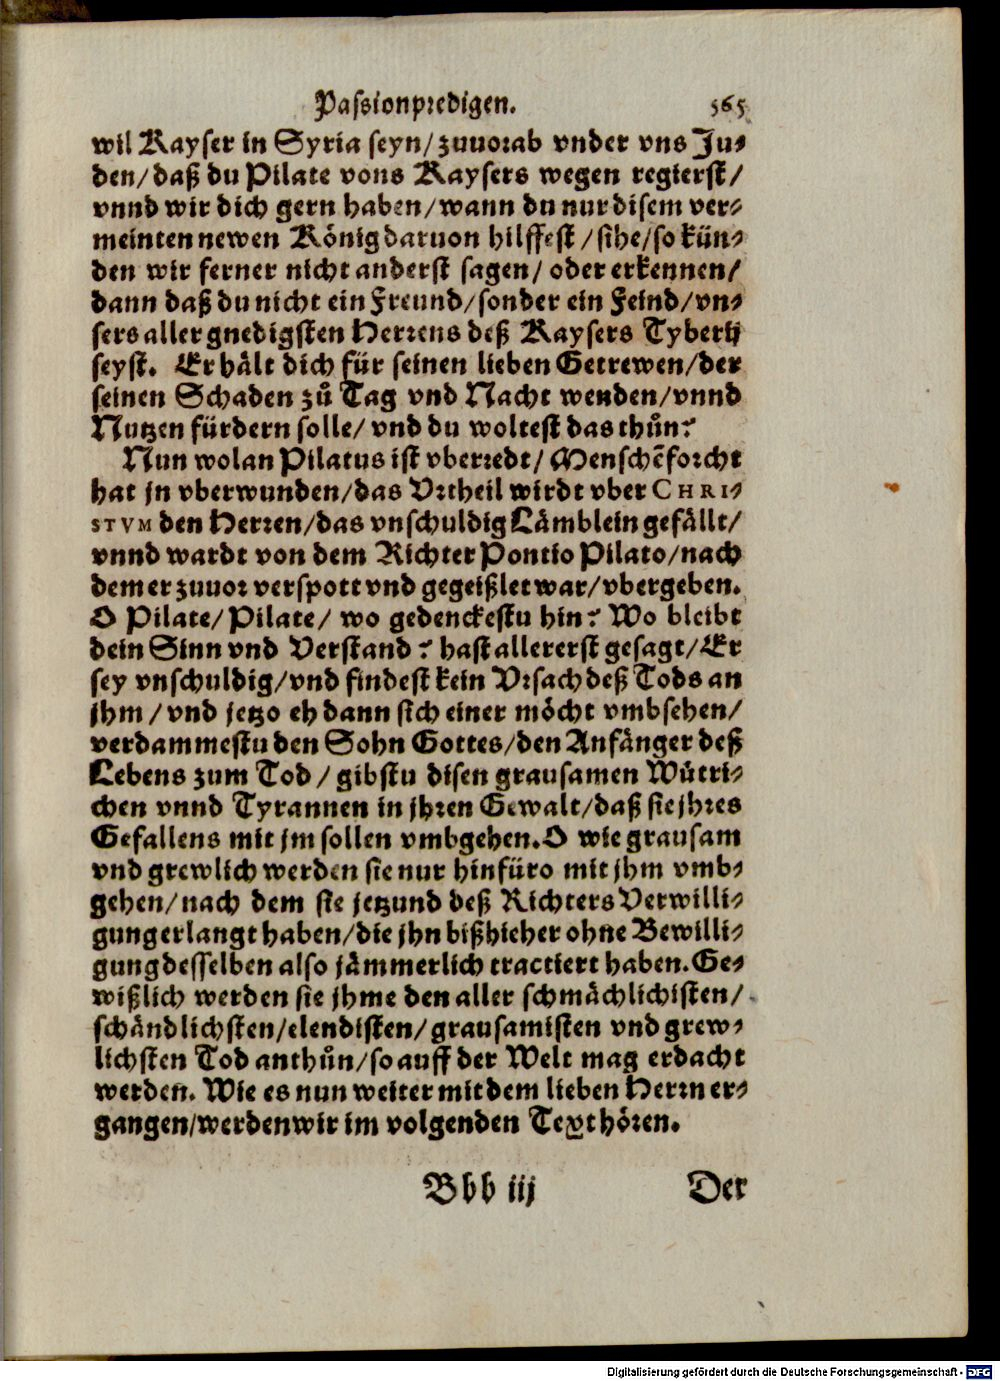 Passionpredigen. 565
wil Kayser in Syria seyn/ zuuorab vnder vns Ju-
den/ daß du Pilate vons Kaysers wegen regierst/
vnnd wir dich gern haben/ wann du nur disem ver-
meinten newen König daruon hilffest/ sihe/ so kün-
den wir ferner nicht anderst sagen/ oder erkennen/
dann daß du nicht ein Freund/ sonder ein Feind/ vn-
sers aller gnedigsten Herrens deß Kaysers Tyberij
seyst. Er hält dich für seinen lieben Getrewen/ der
seinen Schaden zů Tag vnd Nacht wenden/ vnnd
Nutzen fürdern solle/ vnd du woltest das thůn?
Nun wolan Pilatus ist vberredt/ Menschẽforcht
hat jn vberwunden/ das Vrtheil wirdt vber CHRI-
STVM den Herren/ das vnschuldig Lämblein gefällt/
vnnd wardt von dem Richter Pontio Pilato/ nach
dem er zuuor verspott vnd gegeißlet war/ vbergeben.
O Pilate/ Pilate/ wo gedenckestu hin? Wo bleibt
dein Sinn vnd Verstand? hast allererst gesagt/ Er
sey vnschuldig/ vnd findest kein Vrsach deß Tods an
jhm/ vnd jetzo eh dann sich einer möcht vmbsehen/
verdammestu den Sohn Gottes/ den Anfänger deß
Lebens zum Tod/ gibstu disen grausamen Wütri-
chen vnnd Tyrannen in jhren Gewalt/ daß sie jhres
Gefallens mit jm sollen vmbgehen. O wie grausam
vnd grewlich werden sie nur hinfüro mit jhm vmb-
gehen/ nach dem sie jetzund deß Richters Verwilli-
gung erlangt haben/ die jhn bißhieher ohne Bewilli-
gung desselben also jämmerlich tractiert haben. Ge-
wißlich werden sie jhme den aller schmächlichisten/
schändlichsten/ elendisten/ grausamisten vnd grew-
lichsten Tod anthůn/ so auff der Welt mag erdacht
werden. Wie es nun weiter mit dem lieben Herrn er-
gangen/ werden wir im volgenden Text hören.
Bbb iij Der
Digitalisierung gefördert durch die Deutsche Forschungsgemeinschaft - DFG